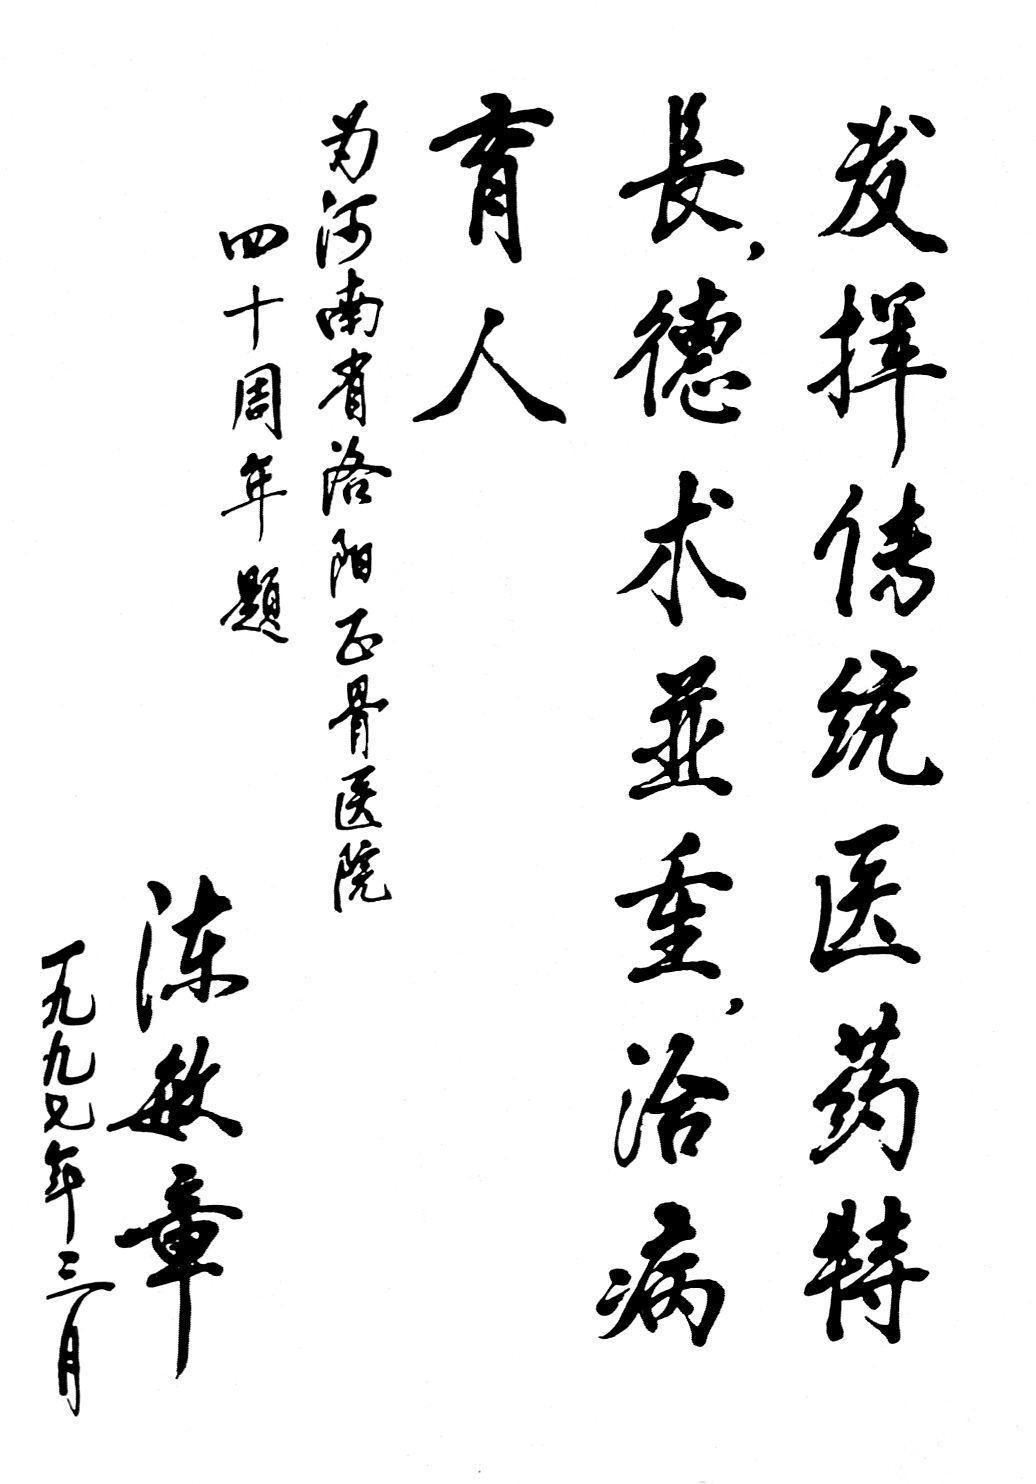 发挥传统医药特
長，德术並重，治病
育人
为河南省洛阳正骨医院
四十周年题
陈敏章
一九九七年三月